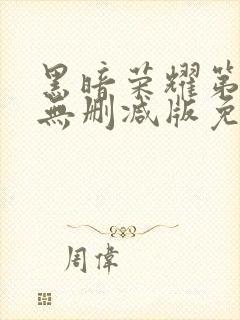 黑暗荣耀第
無删减版免
周偉